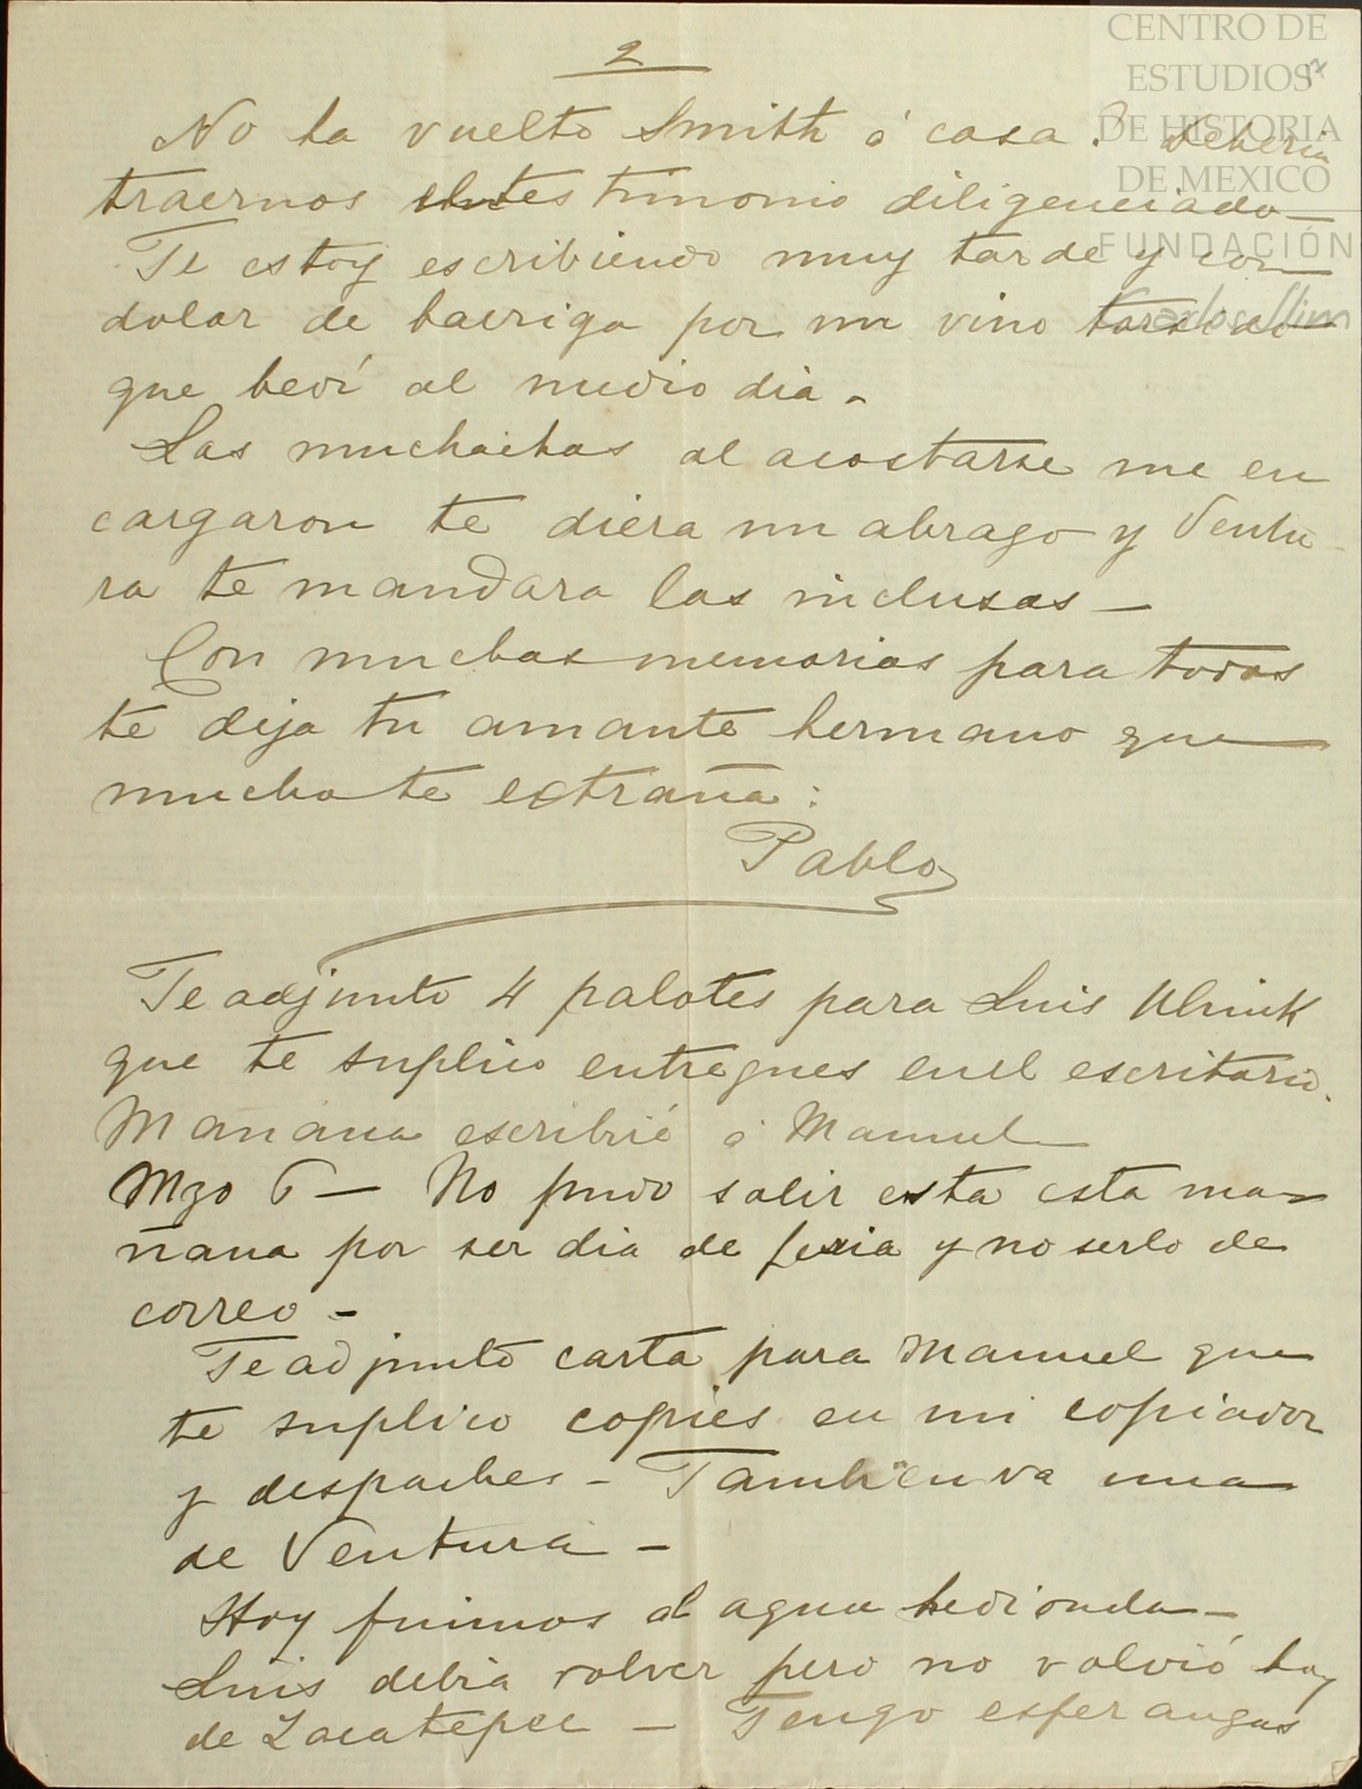 2
No ha vuelto Smith á casa? deberia
traernos el testimonio diligenciado—
Te estoy escribiendo muy tarde y con
dolor de barriga por un vino
que beví al medio dia.
Las muchachas al acostarse me en
cargaron te diera un abrazo y Ventu
ra te mandara las inclusas—
Con muchas memorias para todos
te deja tu amante hermano que
mucho te extraña:
Pablo
Te adjunto 4 palotes para Luis
que te suplico entregues en el escritorio.
Mañana escribiré á Manuel
Mzo 6 — No pudo salir esta esta ma-
ñana por ser dia de feria y no serlo de
correo -
Te adjunto carta para Manuel que
te suplico copies en mi copiador
y despaches - Tambien va una
de Ventura -
Hoy fuimos al agua hedionda -
Luis debia volver pero no volvió hoy
de Zacatepec — Tengo esperanzas
CENTRO DE
ESTUDIOS
DE HISTORIA
DE MEXICO
FUNDACIÓN
Carlos Slim